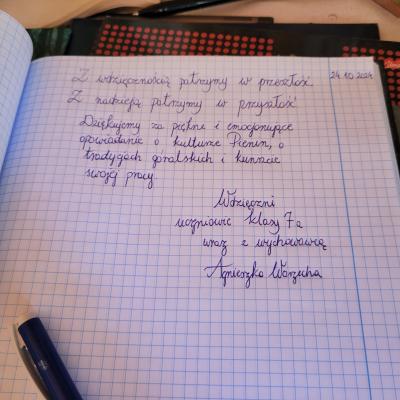 24.10.2024
Z wdzięcznością patrzymy w przeszłość.
Z nadzieją patrzymy w przyszłość
Dziękujemy za piękne i emocjonujące
opowiadanie o kulturze Pienin, o
tradycjach góralskich i kunszcie
swojej pracy.
Wdzięczni
uczniowie klasy 7a
wraz z wychowawcą
Agnieszka Warzecha